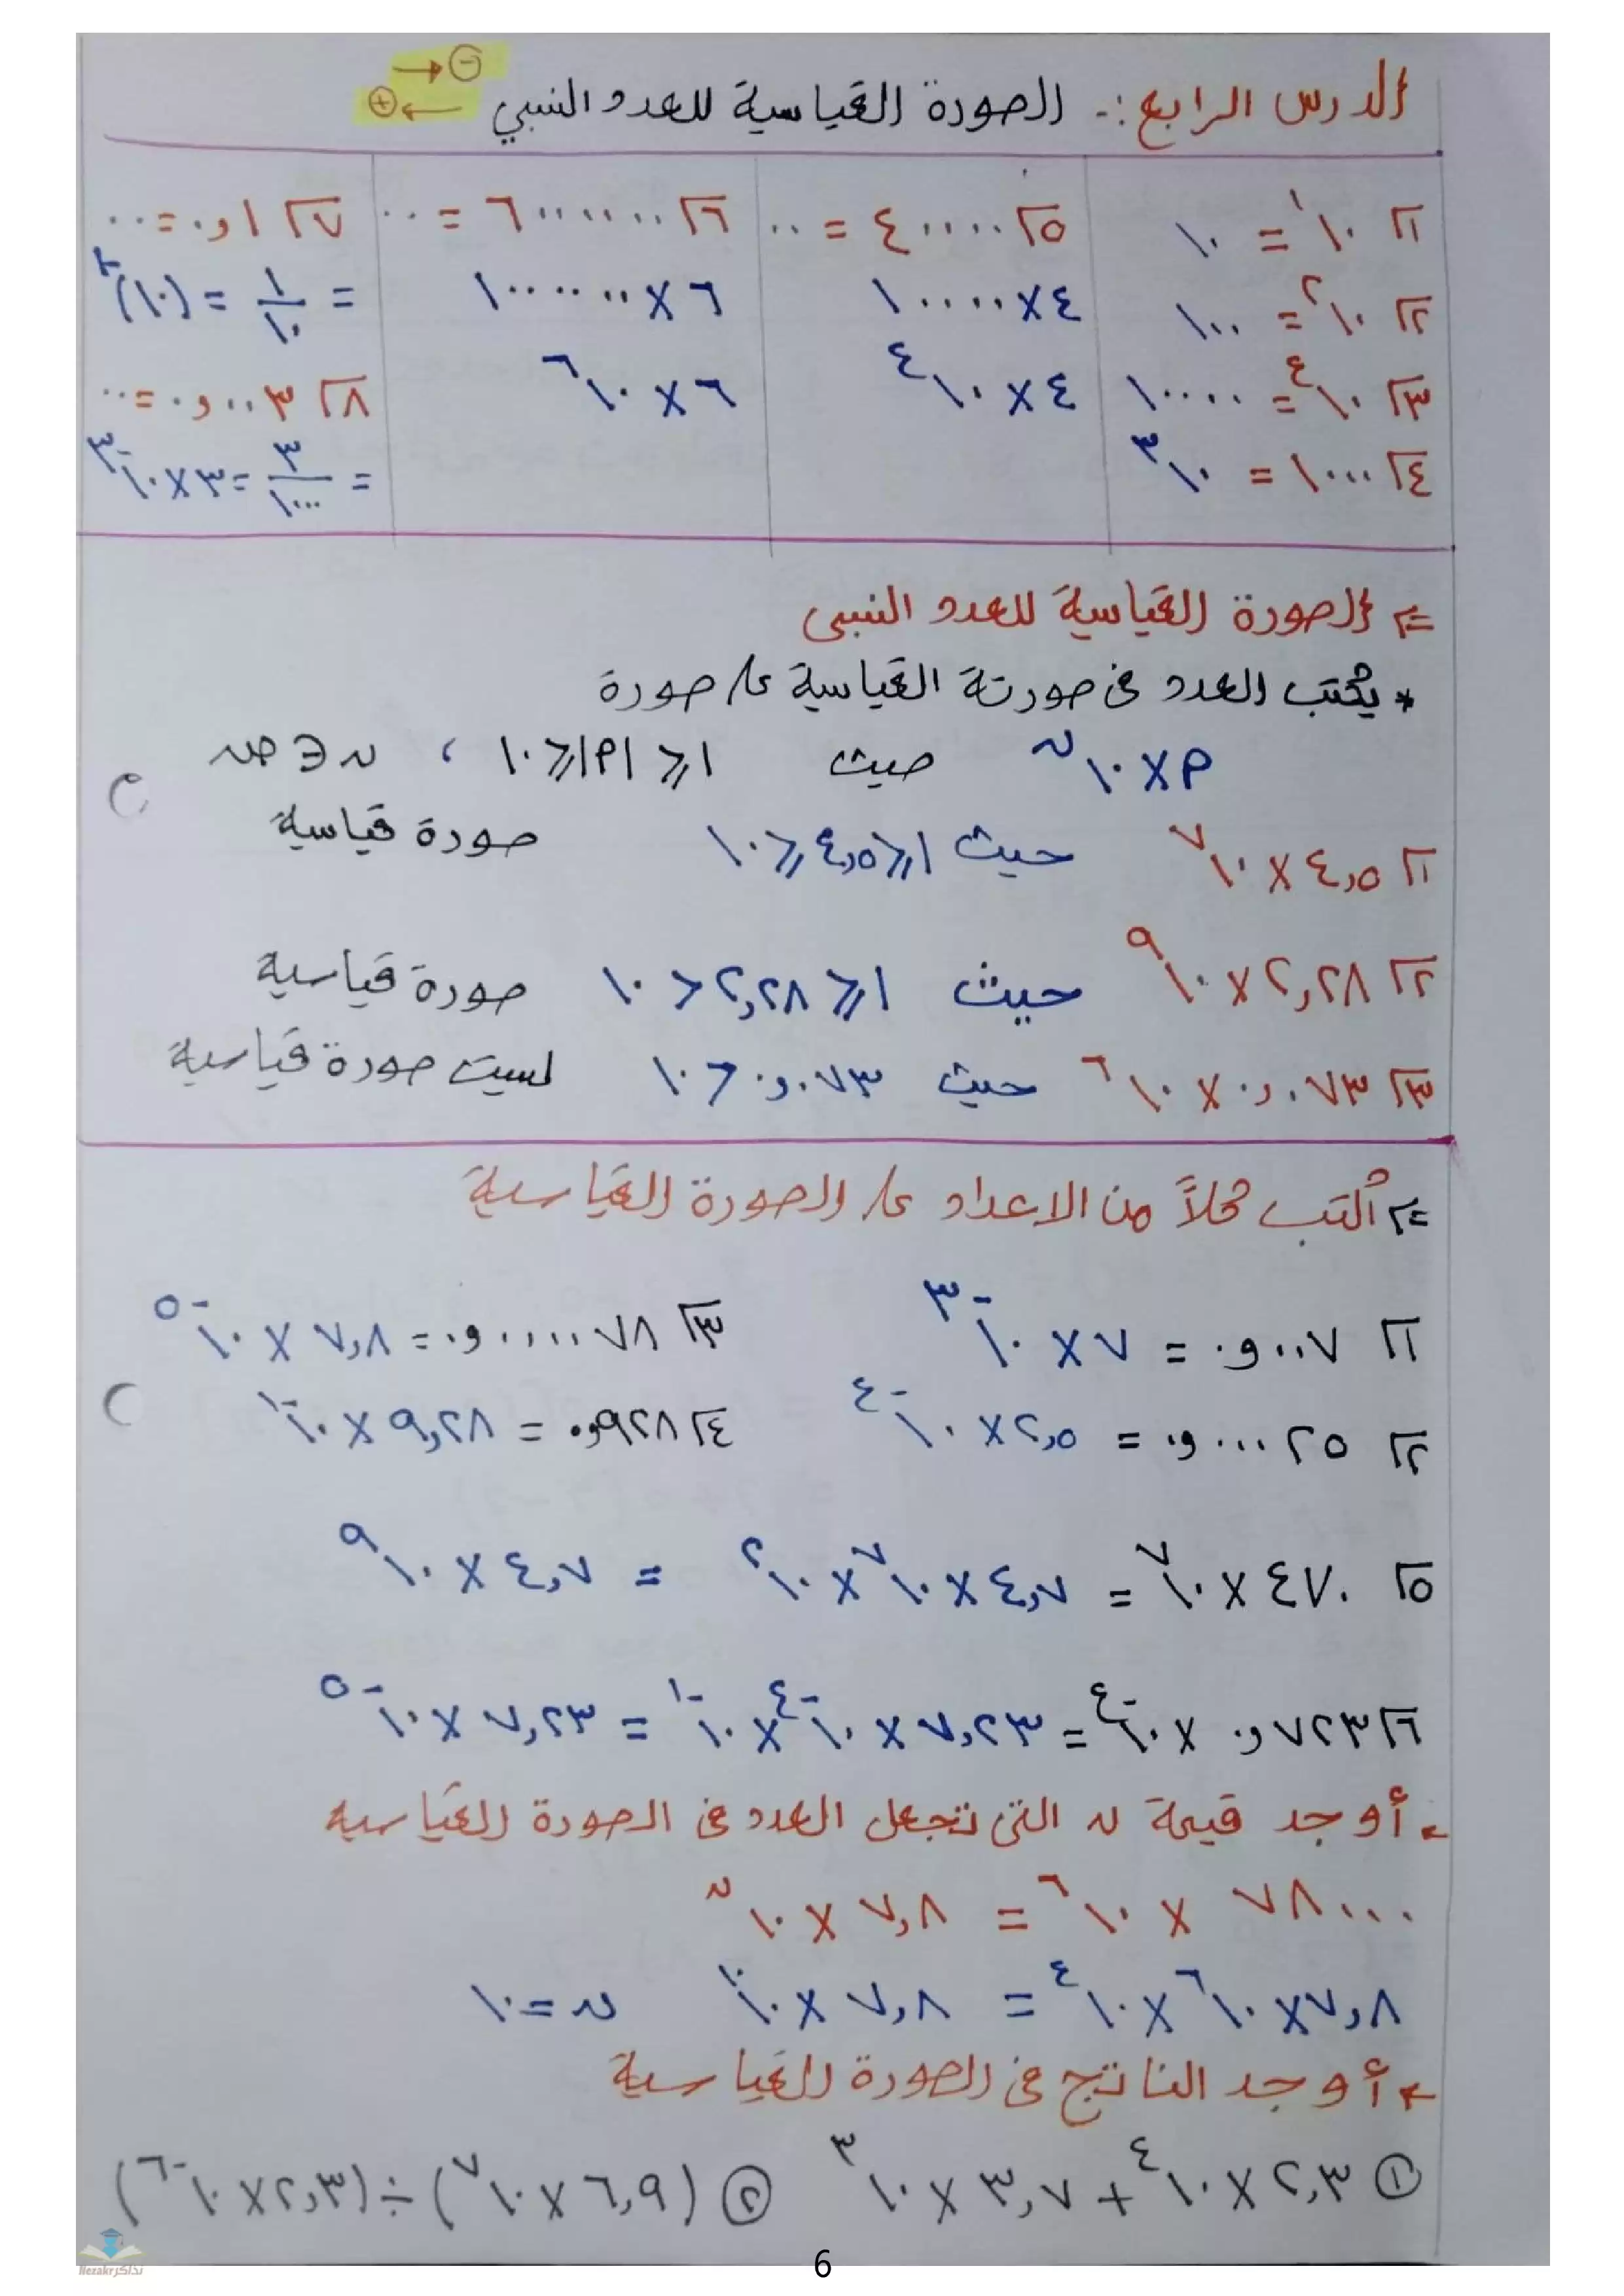 الدرس الرابع :- الصورة القياسية للعدد النسبي → ⊖ ← ⊕
١) ١٠^١ = ١٠
٢) ١٠^٢ = ١٠٠
٣) ١٠^٤ = ١٠٠٠٠
٤) ١٠٠٠ = ١٠^٣
٥) ٤٠٠٠٠٠ = ..
٤ × ١٠٠٠٠٠
٤ × ١٠^٤
٦) ٦٠٠٠٠٠٠ = ..
٦ × ١٠٠٠٠٠٠
٦ × ١٠^٦
٧) ٠,١ = ...
= ١/١٠ = (١٠)
٨) ٠,٠٠٣ = ...
= ٣/١٠٠٠ = ٣ × ١٠^-٣
الصورة القياسية للعدد النسبي
* يكتب العدد فى صورتة القياسية على صورة
م × ١٠^ن حيث ١ ≤ |م| ≤ ١٠ ، ن ∈ ص
١) ٤,٥ × ١٠^٧ حيث ١ ≤ ٤,٥ ≤ ١٠ صورة قياسية
٢) ٢,٢٨ × ١٠^٩ حيث ١ ≤ ٢,٢٨ < ١٠ صورة قياسية
٣) ٠,٠٧٣ × ١٠^٦ حيث ٠,٠٧٣ < ١٠ لسيت صورة قياسية
أكتب كلاً من الاعداد على الصورة القياسية
١) ٠,٠٠٧ = ٧ × ١٠^-٣
٣) ٠,٠٠٠٠٧٨ = ٧,٨ × ١٠^-٥
٢) ٠,٠٠٠٢٥ = ٢,٥ × ١٠^-٤
٤) ٠,٩٢٨ = ٩,٢٨ × ١٠^-١
٥) ٤٧٠ × ١٠^٧ = ٤,٧ × ١٠^٧ × ١٠^٢ = ٤,٧ × ١٠^٩
٦) ٠,٧٢٣ × ١٠^-٤ = ٧,٢٣ × ١٠^-٤ × ١٠^-١ = ٧,٢٣ × ١٠^-٥
أوجد قيمة ن التى تجعل العدد فى الصورة القياسيه
٧٨٠٠٠ × ١٠^٦ = ٧,٨ × ١٠^ن
٧,٨ × ١٠^٦ × ١٠^٤ = ٧,٨ × ١٠^١٠ ن = ١٠
أوجد الناتج فى الصورة القياسية
① ٢,٣ × ١٠^٤ + ٣,٧ × ١٠^٣ ② (٦,٩ × ١٠^٧) ÷ (٢,٣ × ١٠^-٦)
نذاكر Nezakr
6